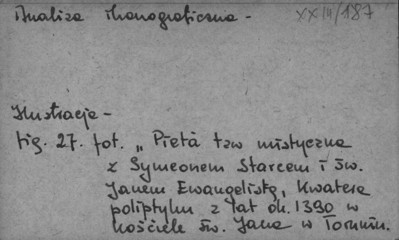 Analiza ikonograficzna -
XXIII/187
Ilustracje -
fig. 27. fot. „Pietà tzw mistyczna
z Symeonem Starcem i św.
Janem Ewangelistą, Kwatera
poliptyku z lat ok. 1390 w
kościele św. Jana w Toruniu.